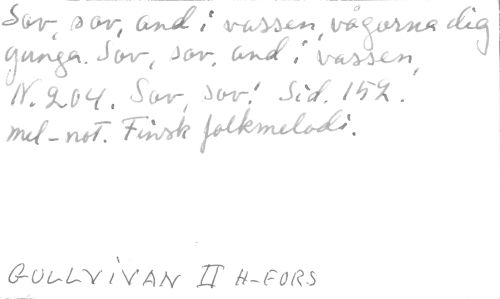 Sov, sov, and i vassen, vågorna dig
gunga. Sov, sov, and i vassen,
N. 204. Sov, sov! Sid. 152.
mel-not. Finsk folkmelodi.
GULLVIVAN II H-FORS